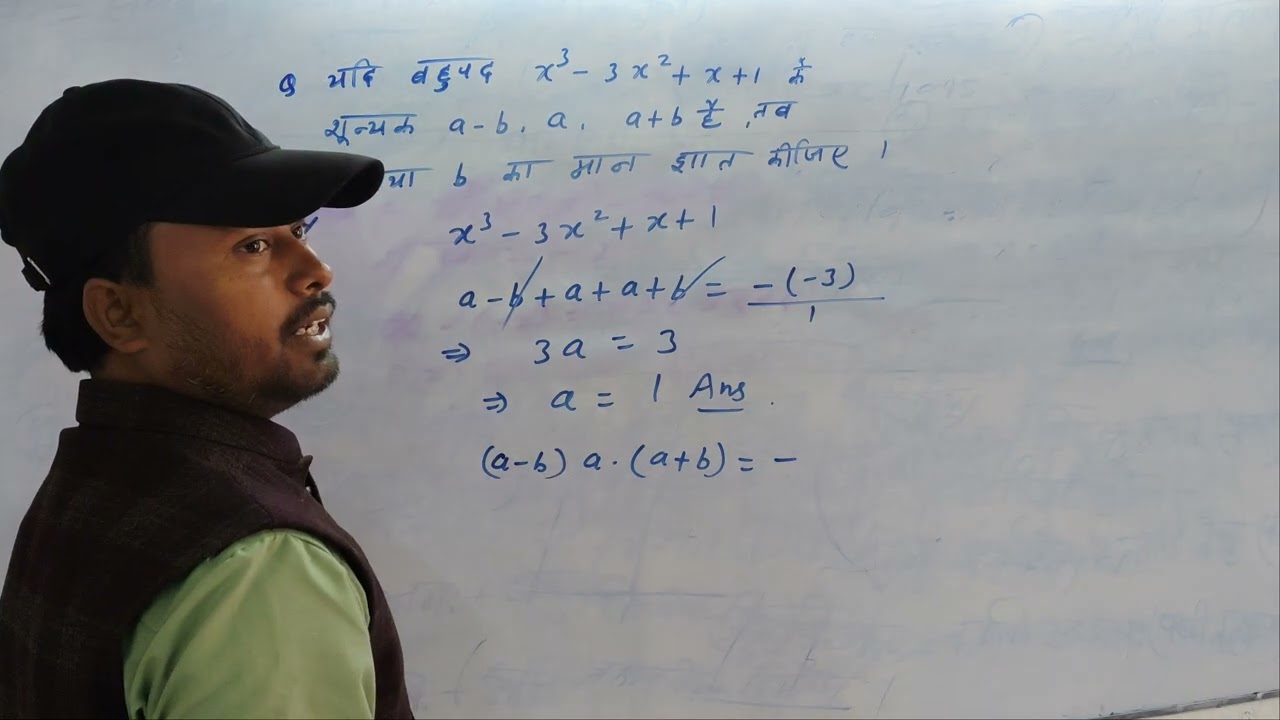 Q यदि बहुपद x³ - 3x² + x + 1 के
शून्यक a-b, a, a+b है, तब
या b का मान ज्ञात कीजिए ।
x³ - 3x² + x + 1
a - b + a + a + b = -(-3)/1
⇒ 3a = 3
⇒ a = 1 Ans.
(a-b) a. (a+b) = -